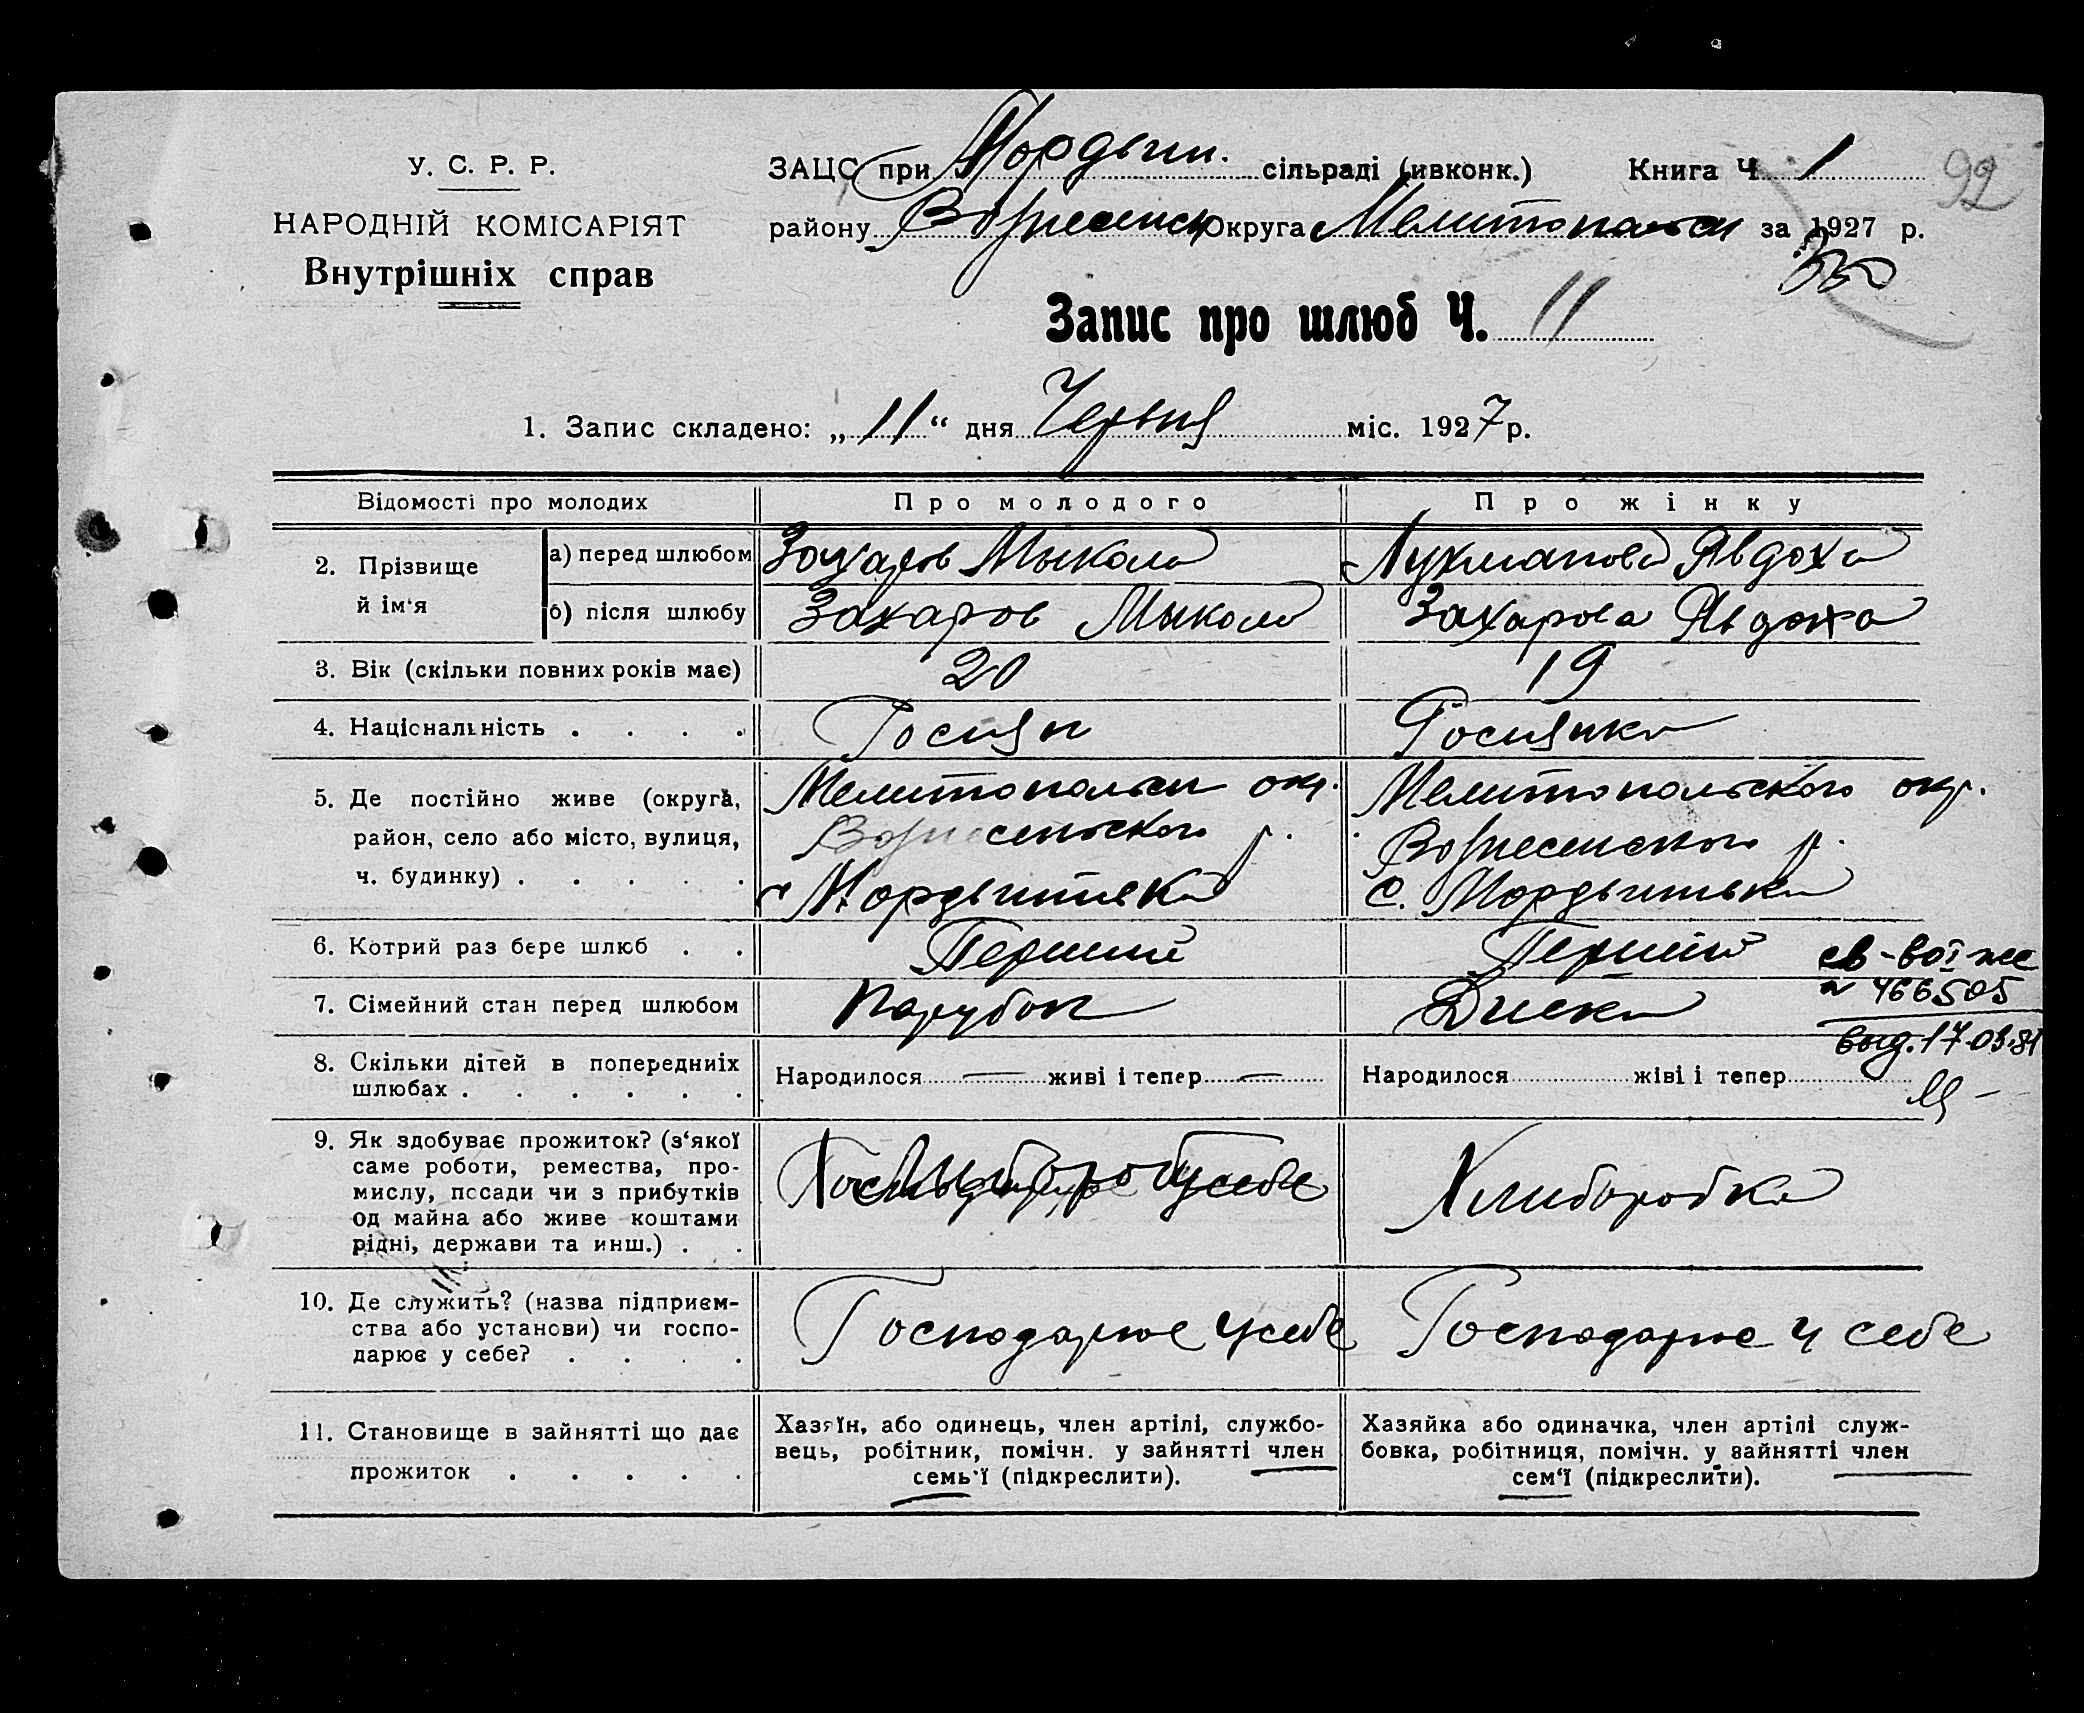 У. С. Р. Р.
НАРОДНІЙ КОМІСАРІЯТ
Внутрішніх справ
ЗАЦС при Мордвин. сільраді (ивконк.) Книга Ч. 1 92
району Вознесенськ Округа Мелитопольск за 1927 р.
Запис про шлюб Ч. 11
1. Запис складено: „ 11 “ дня Червня міс. 1927 р.
Відомості про молодих Про молодого Про жінку
2. Прізвище й ім‘я
а) перед шлюбом Захаров Мыкола Лукманова Явдоха
б) після шлюбу Захаров Мыкола Захарова Явдоха
3. Вік (скільки повних років має) 20 19
4. Національність . . . . Росиян Росиянка
5. Де постійно живе (округа, Мелитопольск окр. Мелитопольского окр.
район, село або місто, вулиця, Вознесенського р. Вознесенского р.
ч. будинку) . . . . . с. Мордвинівка С. Мордвинівка
6. Котрий раз бере шлюб . . Перший Перший
св-во ї-жс
7. Сімейний стан перед шлюбом Парубок Дивка
№ 466505
выд. 17.03.81
8. Скільки дітей в попередніх Народилося — живі і тепер — Народилося жіві і тепер
шлюбах . . . . . .
9. Як здобуває прожиток? (з‘якої
саме роботи, ремества, про-
мислу, посади чи з прибутків Хлиборобка
од майна або живе коштами
рідні, держави та инш.) . .
10. Де служить? (назва підприєм-
ства або установи) чи госпо- Господарює у себе Господарює у себе
дарює у себе? . . . .
11. Становище в зайнятті що дає
прожиток . . . . .
Хазяїн, або одинець, член артілі, службо-
вець, робітник, помічн. у зайнятті член
семь‘ї (підкреслити).
Хазяйка або одиначка, член артілі служ-
бовка, робітниця, помічн. у зайнятті член
сем‘ї (підкреслити).